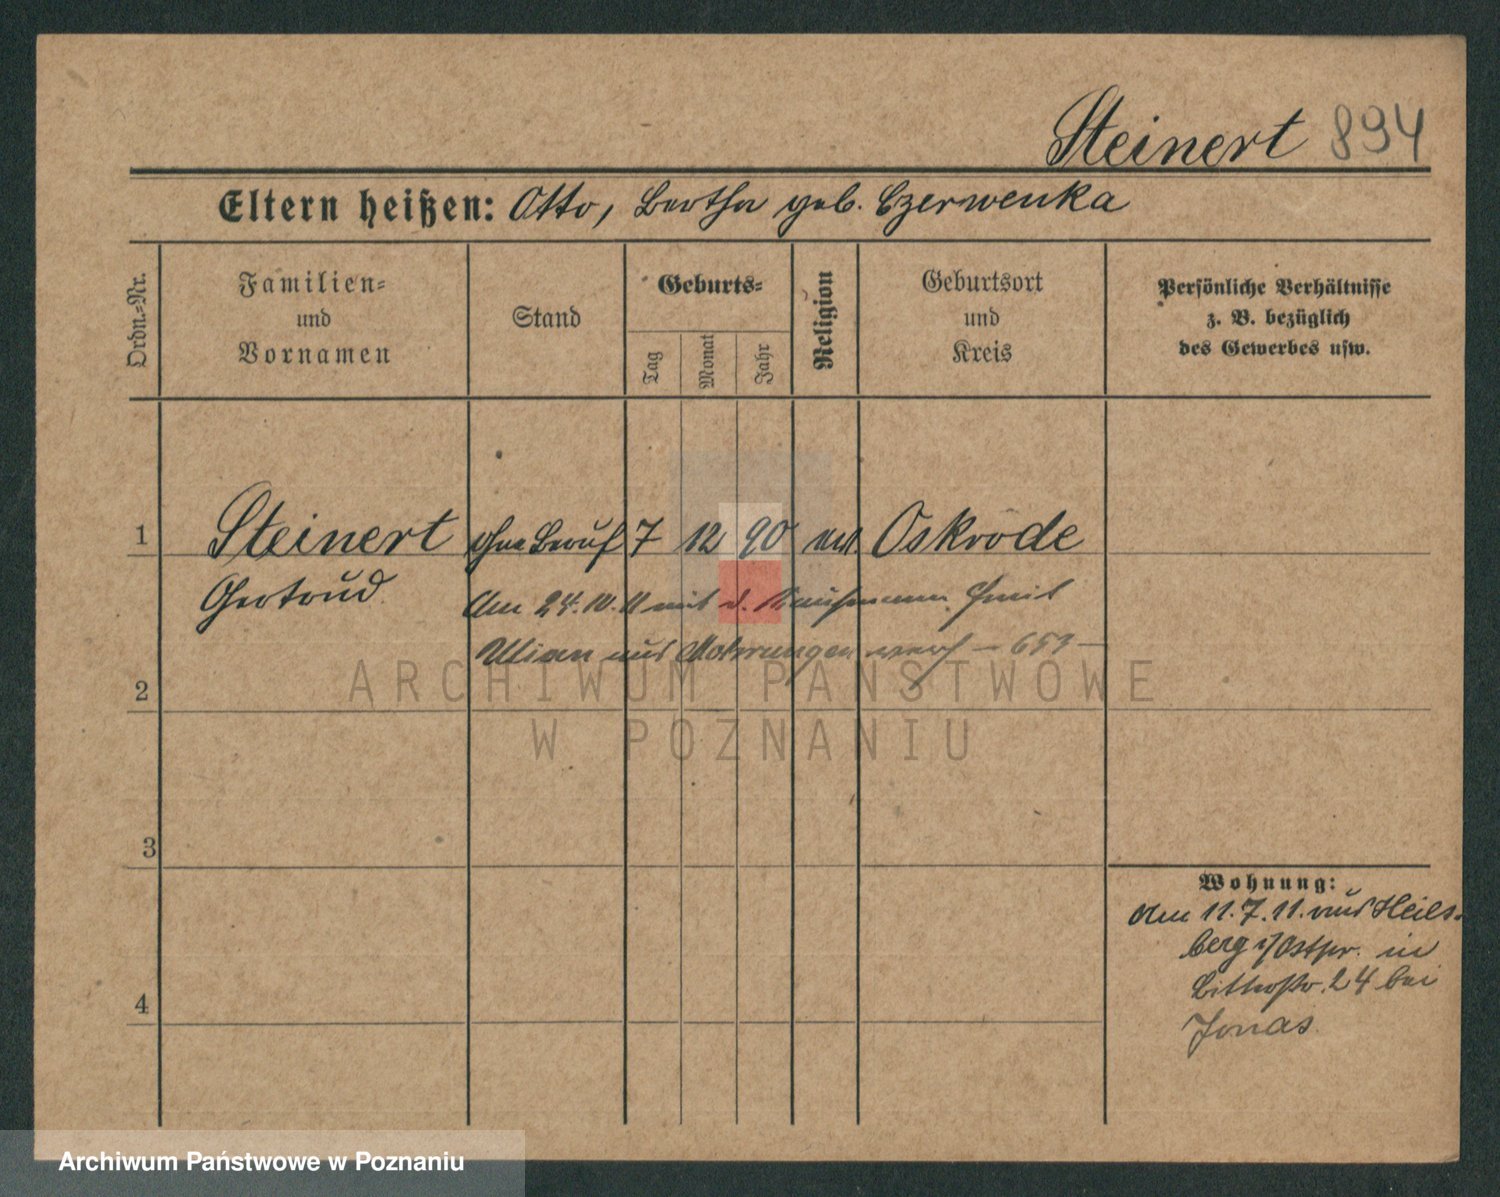 Steinert 894
Eltern heißen: Otto, Bertha geb. Czerwenka
Ordn.=Nr.
Familien=
und
Vornamen
Stand
Geburts=
Tag
Monat
Jahr
Religion
Geburtsort
und
Kreis
Persönliche Verhältnisse
z. B. bezüglich
des Gewerbes usw.
1 Steinert ohne Beruf 7 12 90 Osterode
Gertrud
Am 24.10.11 mit d. Kaufmann Emil
aus Mohrungen verh – 659 –
2
3
4
Wohnung:
Am 11.7.11. aus Heils-
berg i/Ostpr. in
24 bei
Jonas
ARCHIWUM PAŃSTWOWE
W POZNANIU
Archiwum Państwowe w Poznaniu